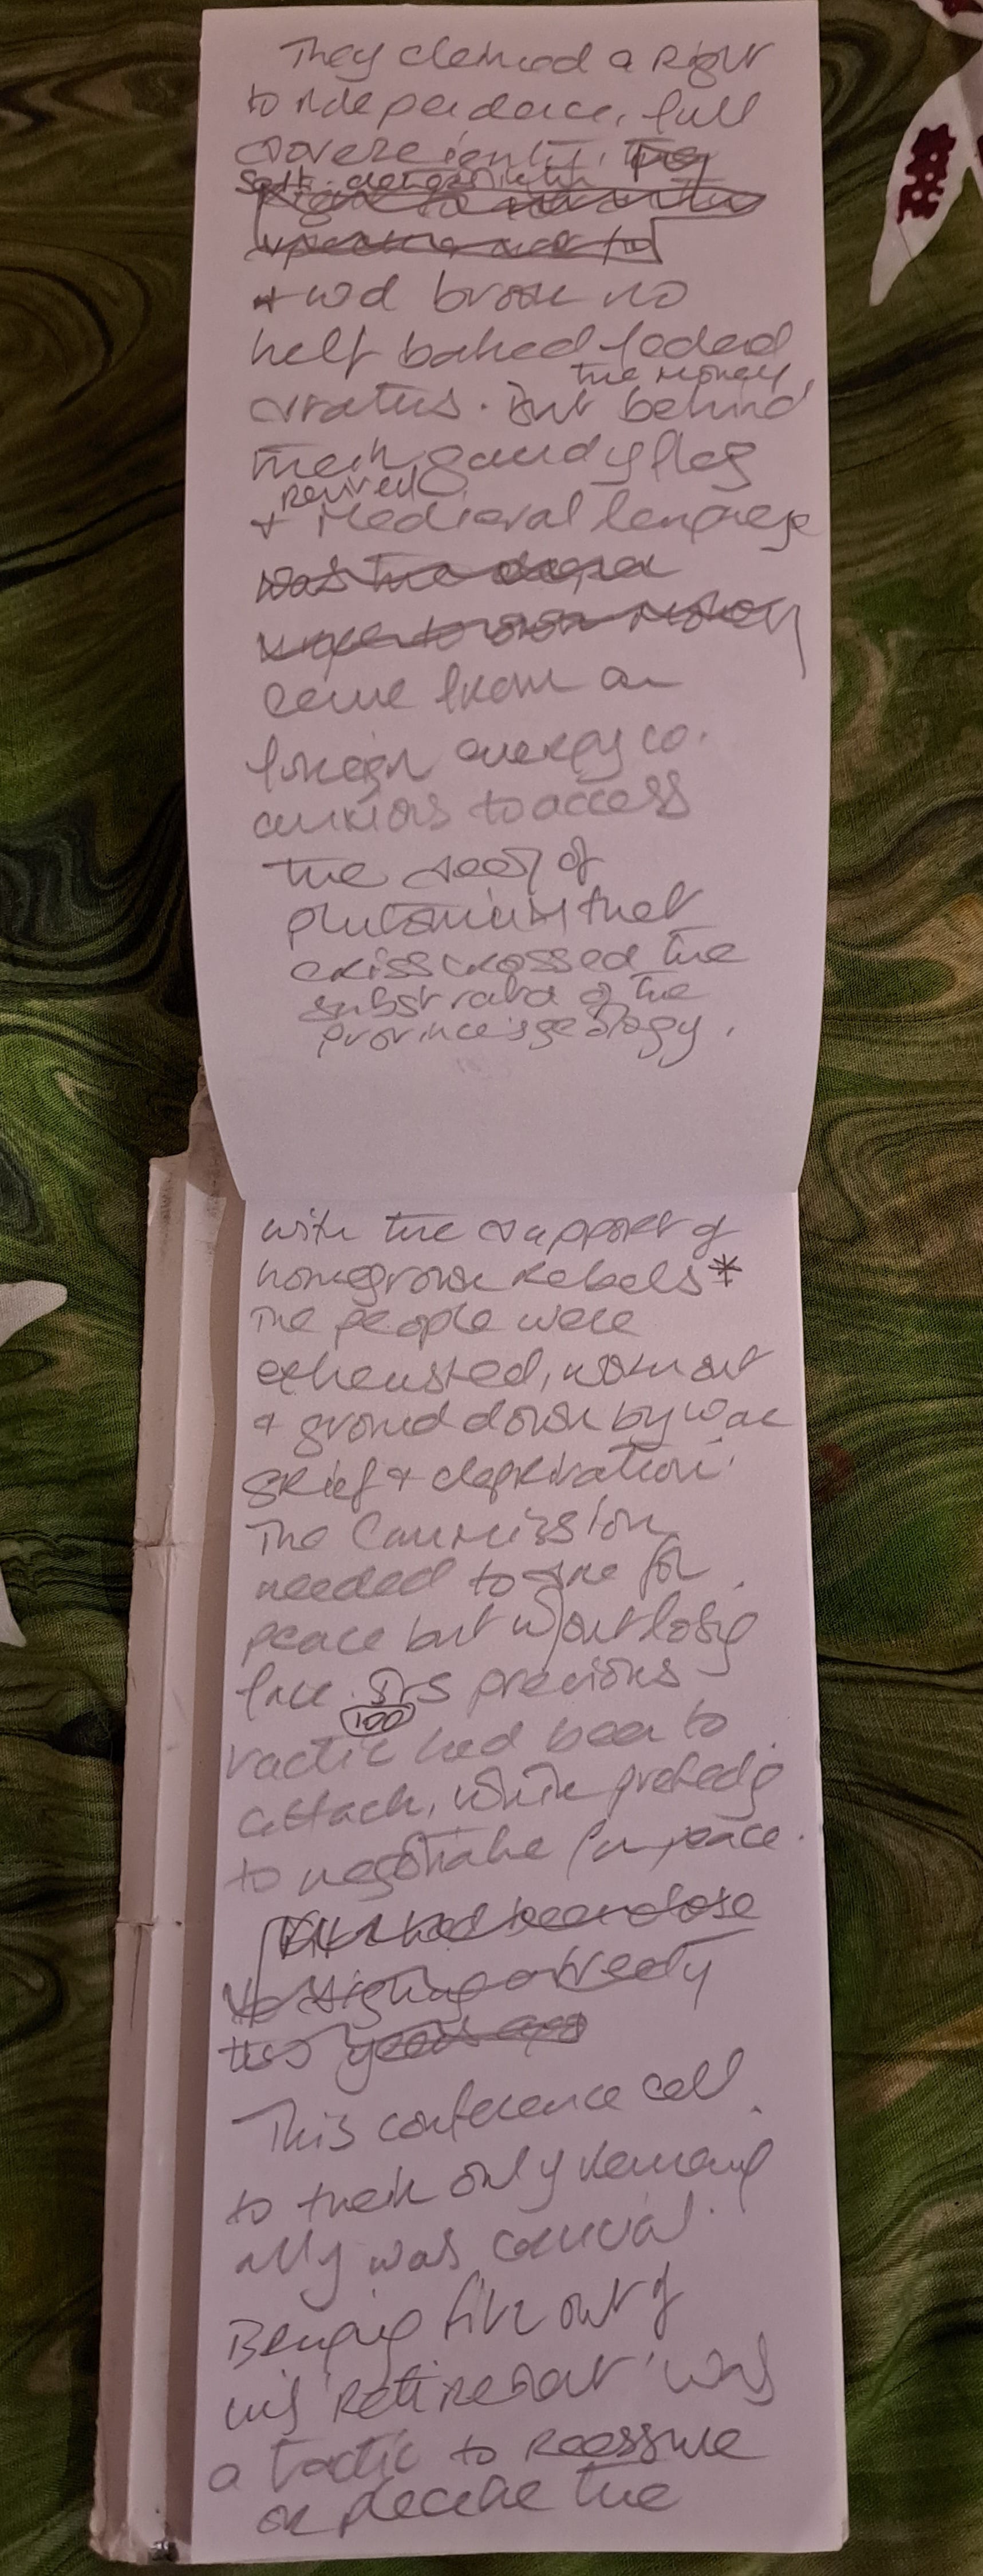 They claimed a right
to independence, full
sovereignty, they
self-determination
+ wd brook no
half baked federal
status. But behind
the money,
their gaudy flag
revived
+ medieval language
was the deeper
money
came from a
foreign energy co.
anxious to access
the seam of
plutonium that
crisscrossed the
substrata of the
province's geology.
with the support of
homegrown rebels *
The people were
exhausted, worn out
+ ground down by war
grief + deprivation.
The Commission
needed to sue for
peace but w/out losing
face. Its previous
100
tactic had been to
attach, while pretendg
to negotiate for peace.
had been close
to signing a treaty
two years ago
This conference call
to their only remaing
ally was crucial.
Bringing him out of
his 'retirement' was
a tactic to reassure
or deceive the